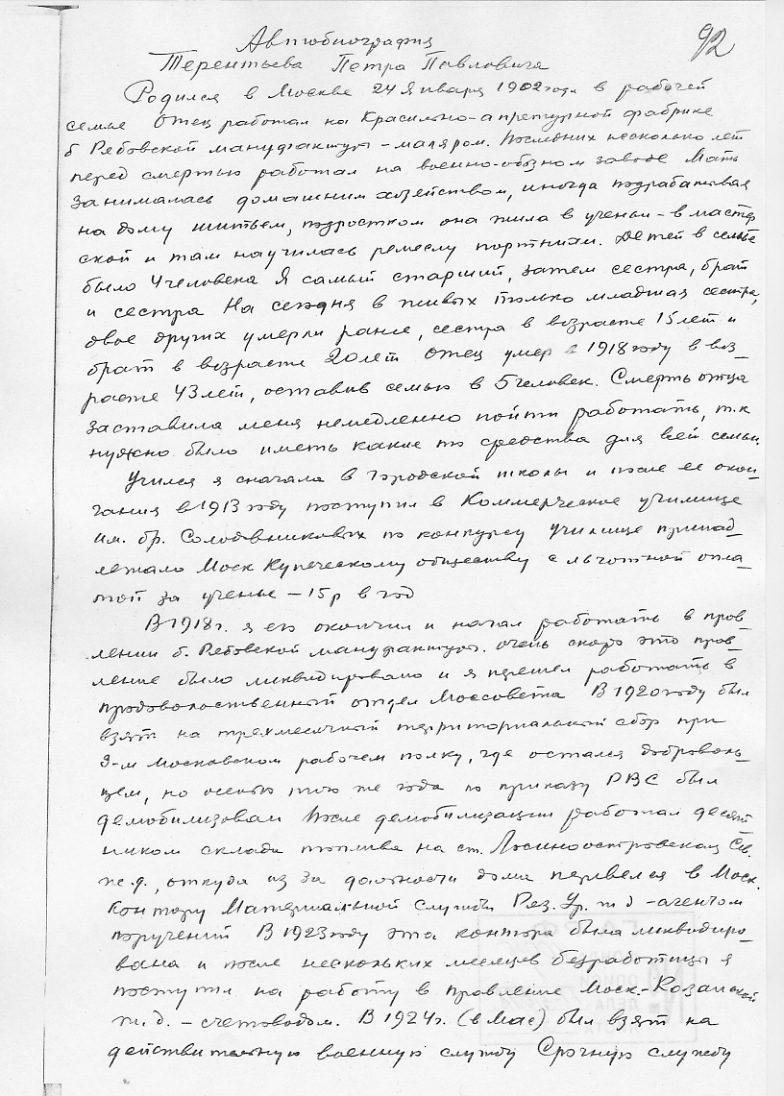 92
Автобиография
Терентьева Петра Павловича
Родился в Москве 24 Января 1902 года в рабочей
семье Отец работал на Красильно-аппретурной фабрике
б Рябовской мануфактуры – маляром. Последних несколько лет
перед смертью работал на военно-обозном заводе Мать
занималась домашним хозяйством, иногда подрабатывая
на дому шитьем, подростком она жила в ученьи – в мастер
ской и там научилась ремеслу портнихи. Детей в семье
было 4 человека Я самый старший, затем сестра, брат
и сестра На сегодня в живых только младшая сестра,
двое других умерли ранее, сестра в возрасте 15 лет и
брат в возрасте 20 лет Отец умер в 1918 году в воз_
расте 43 лет, оставив семью в 5 человек. Смерть отца
заставила меня немедленно пойти работать, т.к
нужно было иметь какие то средства для всей семьи.
Учился я сначала в городской школы и после ее окон-
чания в 1913 году поступил в Коммерческое училище
им. бр. Солодовниковых по конкурсу Училище принад_
лежало Моск Купеческому обществу с льготной опла_
той за ученье – 15 р в год
В 1918 г. я его окончил и начал работать в прав_
лении б. Рябовской мануфактуры. очень скоро это прав_
ление было ликвидировано и я перешел работать в
продовольственный отдел Моссовета В 1920 году был
взят на трехмесячный территориальный сбор при
3-м Московском рабочем полку, где остался доброволь_
цем, но осенью того же года по приказу РВС был
демобилизован После демобилизации работал десят
ником склада топлива на ст. Лосиноостровская Сев.
ж.д., откуда из за дальности дома перевелся в Моск.
Контору Материальной службы Ряз. Ур. ж д – агентом
поручений В 1923 году эта контора была ликвидиро_
вана и после нескольких месяцев безработицы я
поступил на работу в правление Моск-Казанской
ж. д. – счетоводом. В 1924 г. (в Мае) был взят на
действительную военную службу Срочную службу